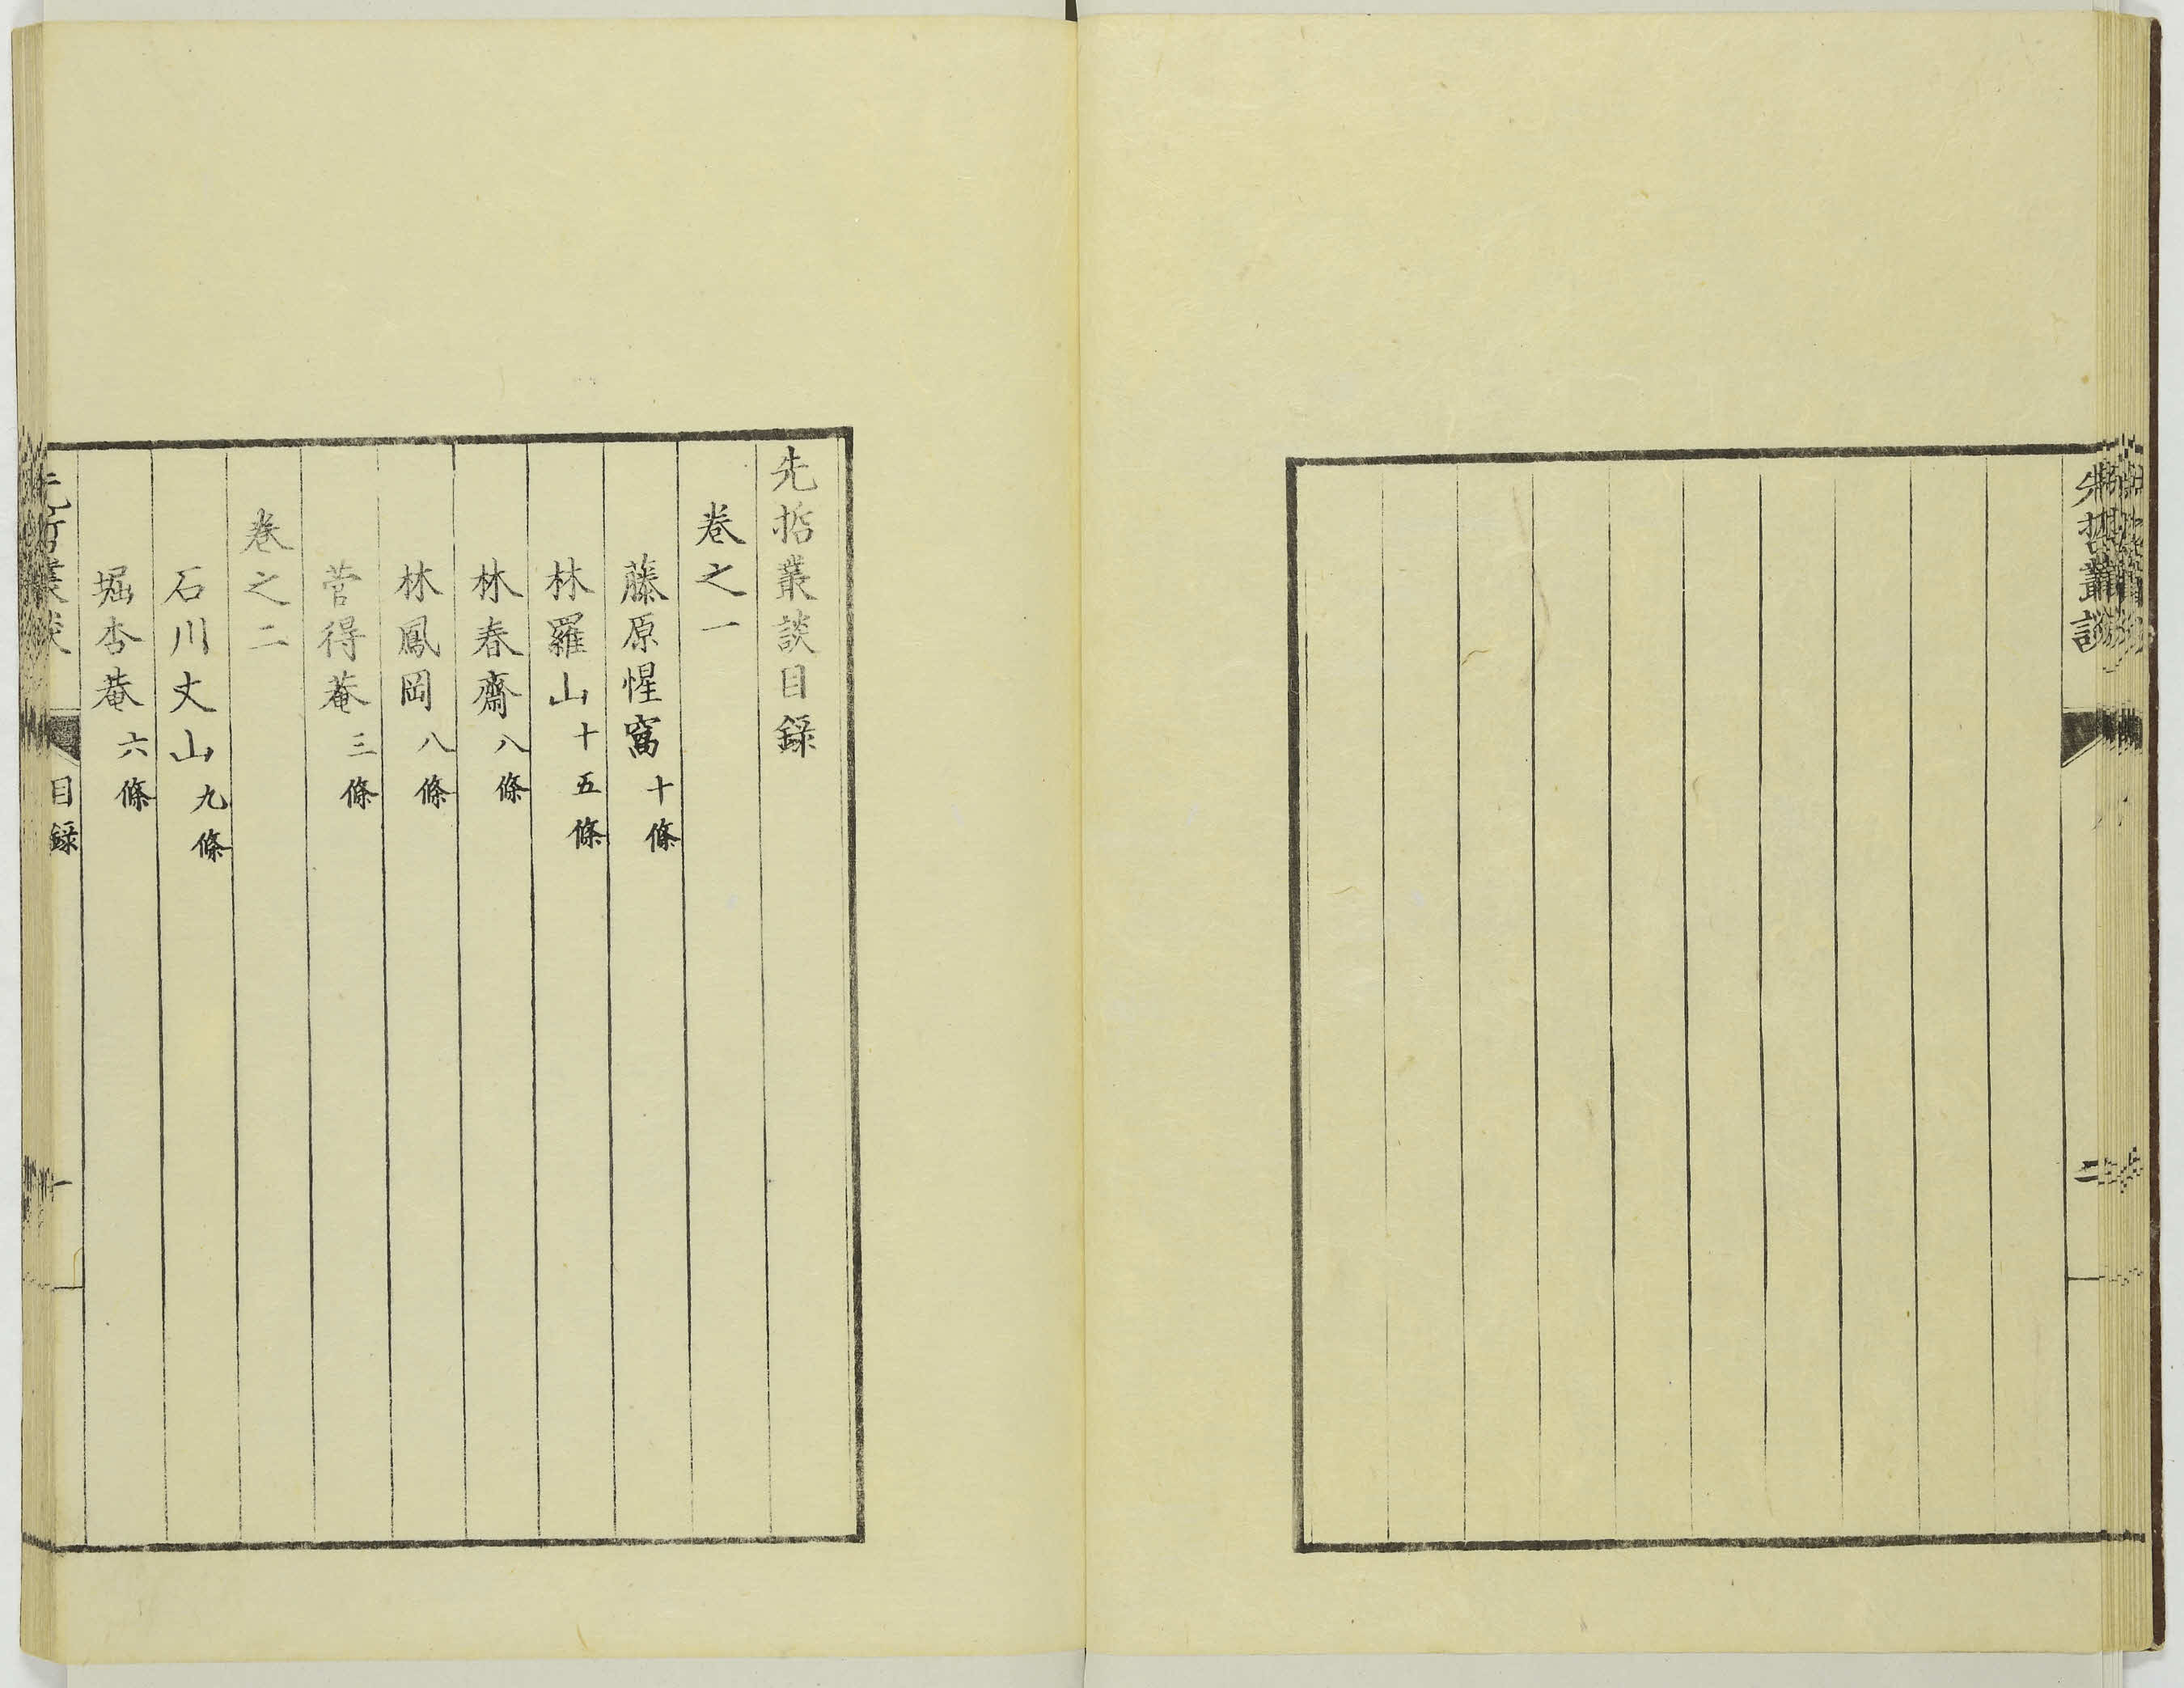 先哲叢談
二
先哲叢談目錄
卷之一
藤原惺窩十條
林羅山十五條
林春齋八條
林鳳岡八條
菅得菴三條
卷之二
石川丈山九條
堀杏菴六條
先哲叢談
目錄
一